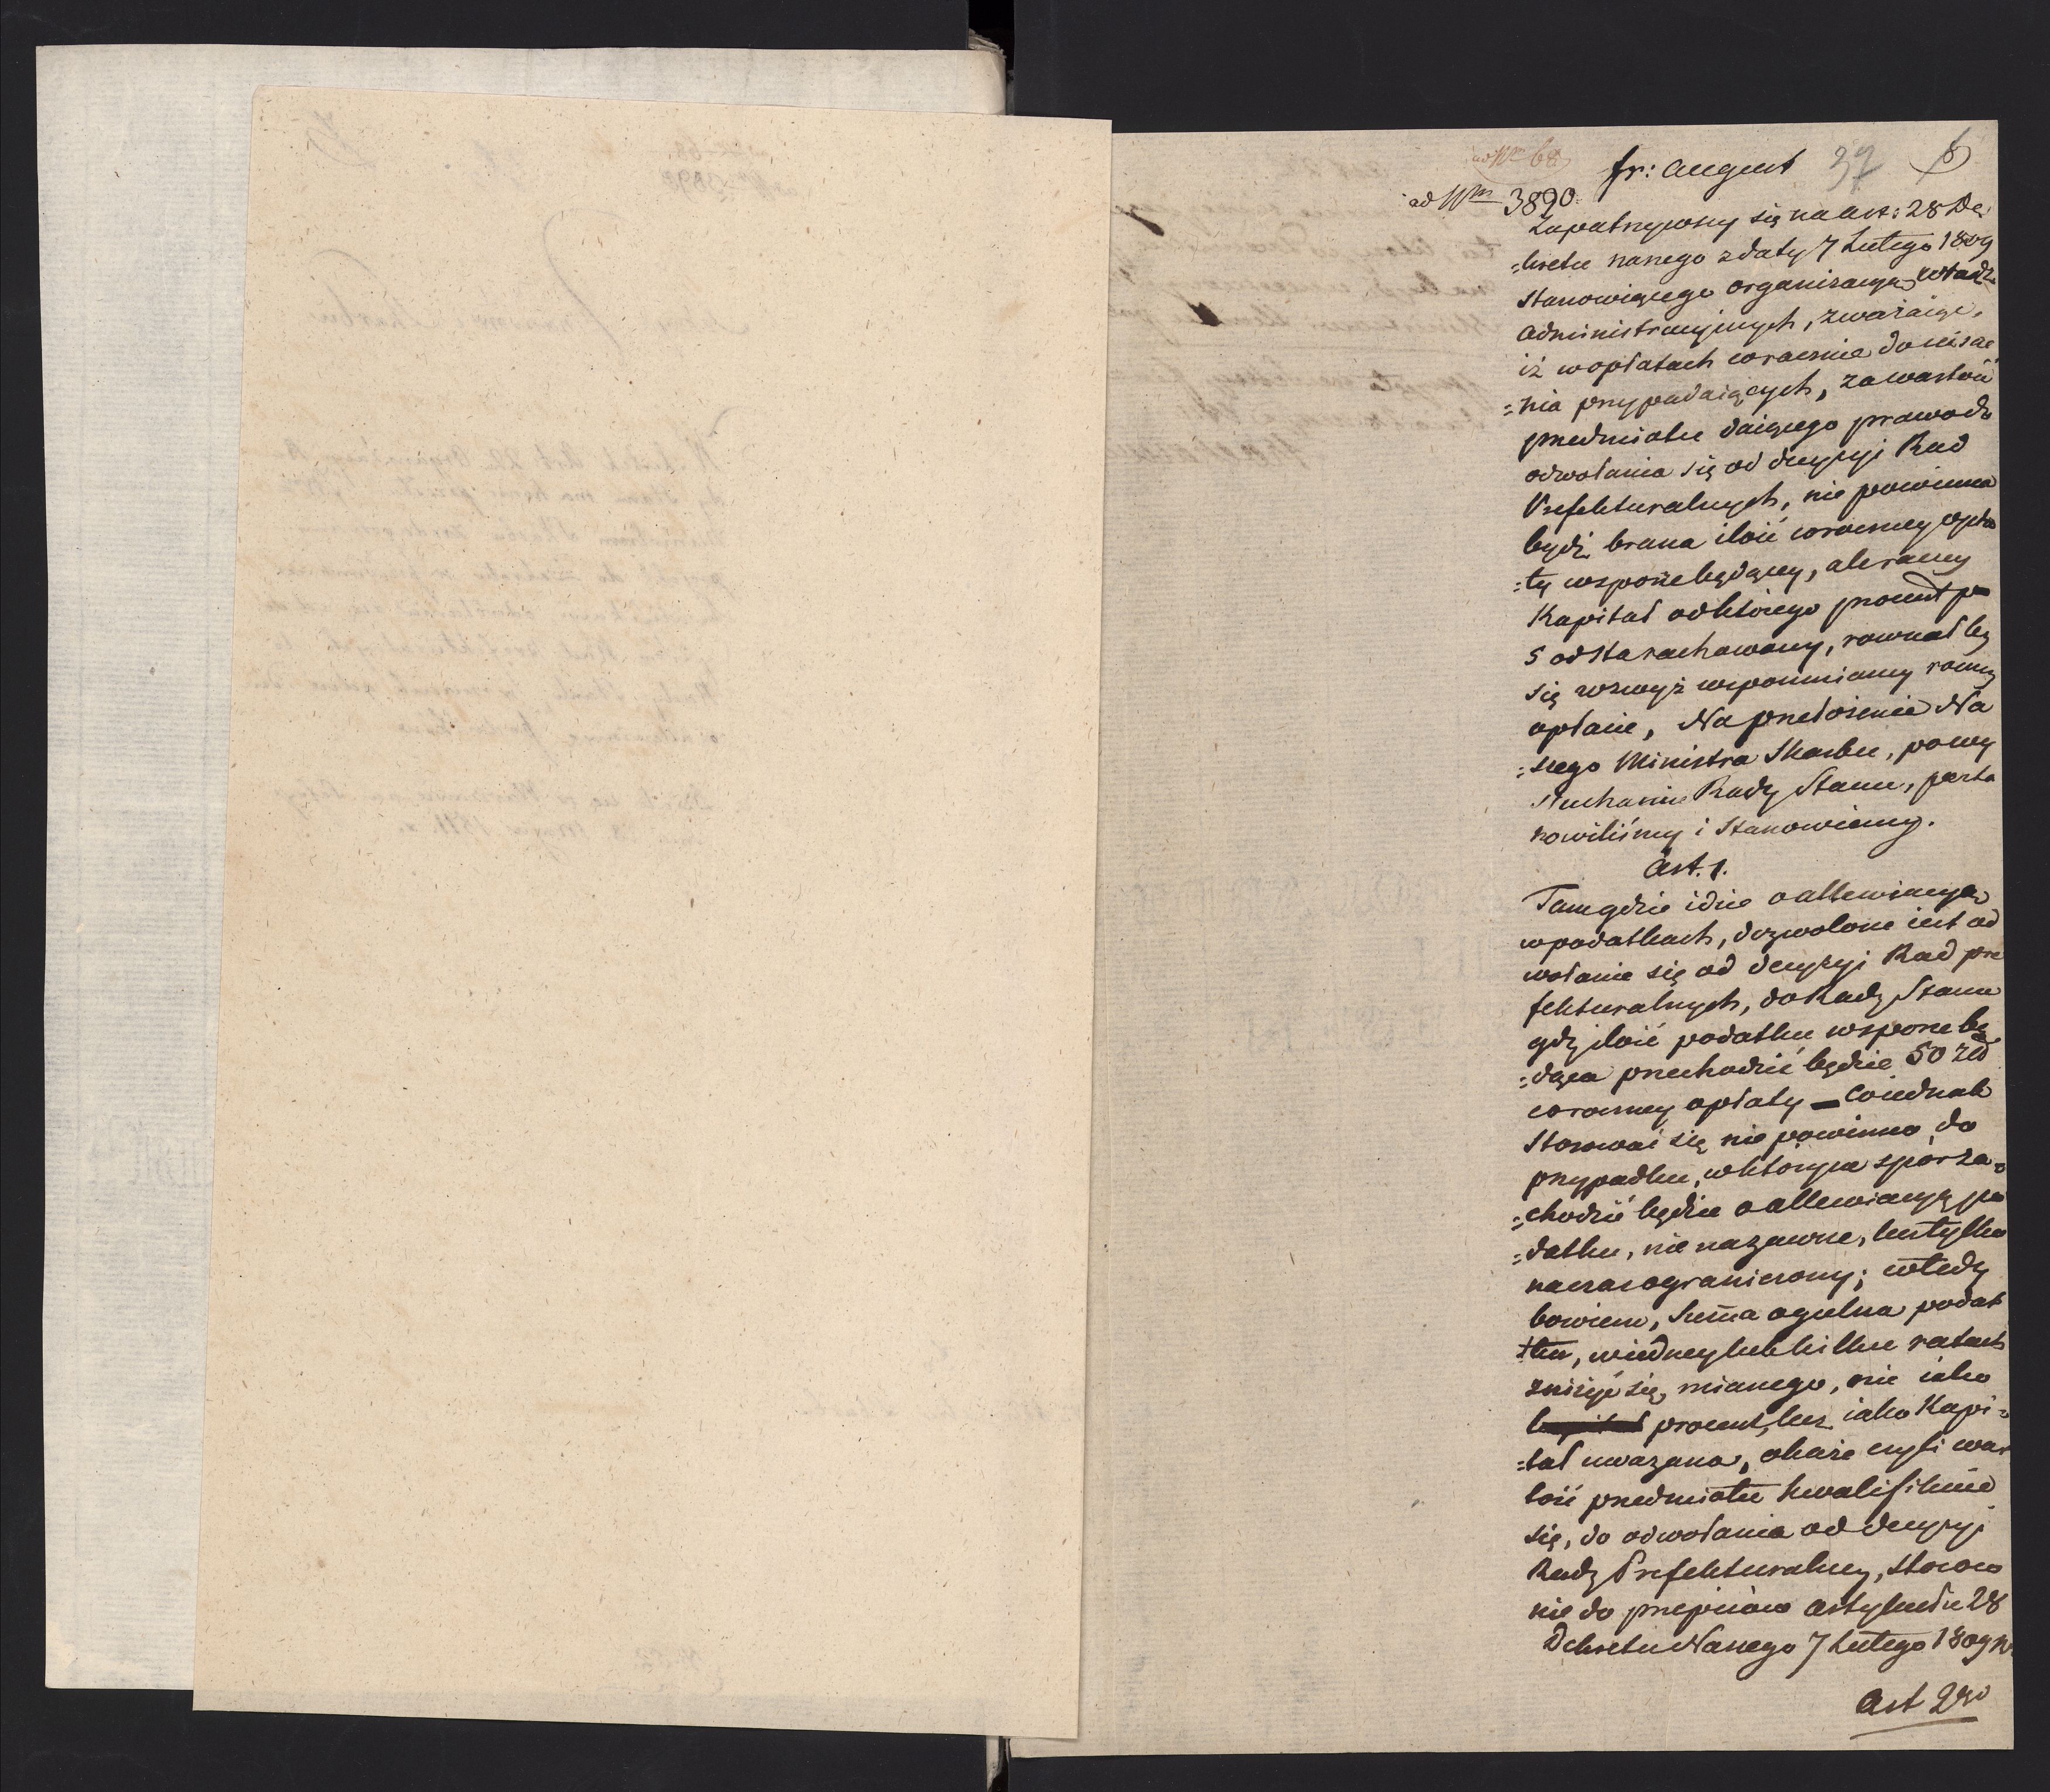 ad Nrm 68
fr: August 37 6
ad Nrm 3890.
Zapatrywszy się na art: 28 De
=kretu naszego z daty 7 Lutego 1809
stanowiącego organizacyą władz
administracyinych, zważaiąc,
iż w opłatach corocznie do uiszcze
=nia przypadaiących, za wartość
przedmiotu daiącego prawo do
odwołania się od decyzyi Rad
Prefekturalnych, nie powinna
bydź brana ilość coroczney opła
=ty w sporze będącey, ale raczey
Kapitał od którego procent po
5 od sta rachowany, rownał by
się wzwyż wspomnianey roczney
opłacie, Na przełożenie Na
=szego Ministra Skarbu, po wy
słuchaniu Rady Stanu, posta
nowiliśmy i Stanowiemy.
Art. 1.
Tam gdzie idzie o allewiacyą
w podatkach, dozwolone iest od
wołanie się od decyzyi Rad pre
fekturalnych, do Rady Stanu
gdy ilość podatku w sporze bę
=dąca przechodzić będzie 50 zł
coroczney opłaty — Co iednak
Stosować się nie powinno do
przypadku, w którym spór za=
=chodzić będzie o allewiacyą po
=datku, nie na zawsze, lecz tylko
na czas ograniczony; wtedy
bowiem, Suma̅ ogulna podat
=ku, w iedney lub kilku ratach
zniżyć się mianego, nie iako
procent, lecz iako Kapi=
=tał uważana, okaże czyli war
tość przedmiotu kwalifikuie
się, do odwołania od decyzyi
Rady Prefekturalney, stosow
nie do przepisów artykułu 28
Dekretu Naszego 7 Lutego 1809 r.
Art 2go